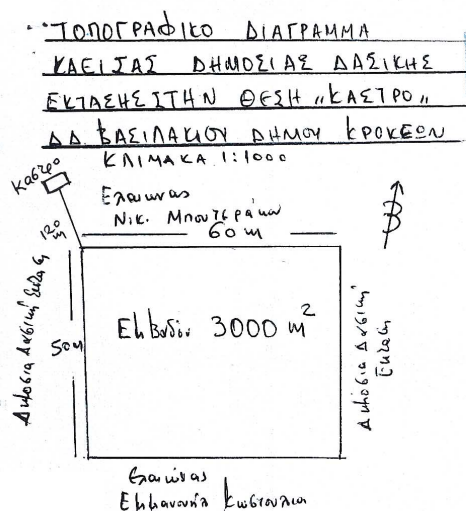 ΤΟΠΟΓΡΑΦΙΚΟ ΔΙΑΓΡΑΜΜΑ
ΚΛΕΙΣΑΣ ΔΗΜΟΣΙΑΣ ΔΑΣΙΚΗΣ
ΕΚΤΑΣΗΣ ΣΤΗΝ ΘΕΣΗ „ΚΑΣΤΡΟ„
ΔΔ. ΒΑΣΙΛΑΚΙΟΥ ΔΗΜΟΥ ΚΡΟΚΕΩΝ
ΚΛΙΜΑΚΑ 1:1000
Καστρο
Ελαιωνας
Νικ. Μπουτσράκου
120 m
60 m
Β
Δημόσια Δασική Έκταση
50 m
Εμβαδόν 3000 m²
Δημόσια Δασική
Έκταση
Ελαιώνας
Εμμανουήλ Κωστουλια